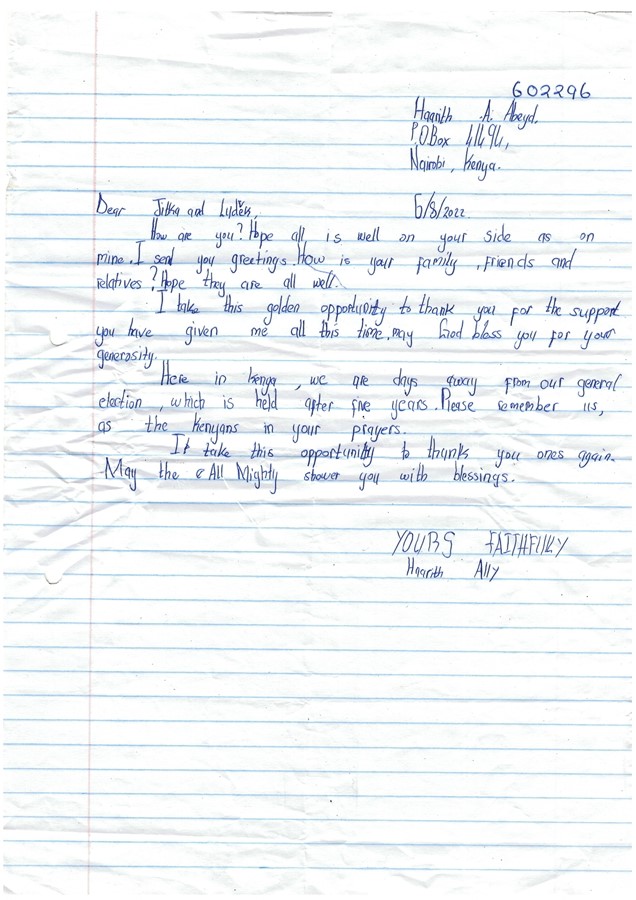 602296
Haarith A. Abeyd.
P.O Box 41494,
Nairobi, Kenya.
Dear Jitka and Luděk, 6/8/2022
How are you? Hope all is well on your side as on
mine. I send you greetings. How is your family, friends and
relatives? Hope they are all well.
I take this golden opportunity to thank you for the support
you have given me all this time, may God bless you for your
generosity.
Here in Kenya, we are days away from our general
election, which is held after five years. Please remember us,
as the Kenyans in your prayers.
It take this opportunity to thanks you ones again.
May the All Mighty shower you with blessings.
YOURS FAITHFULLY
Haarith Ally